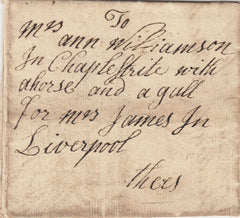 To
mrs ann Williamson
In Chaplestrite with
ahorse and a gall
for mrs James In
Liverpool
thers